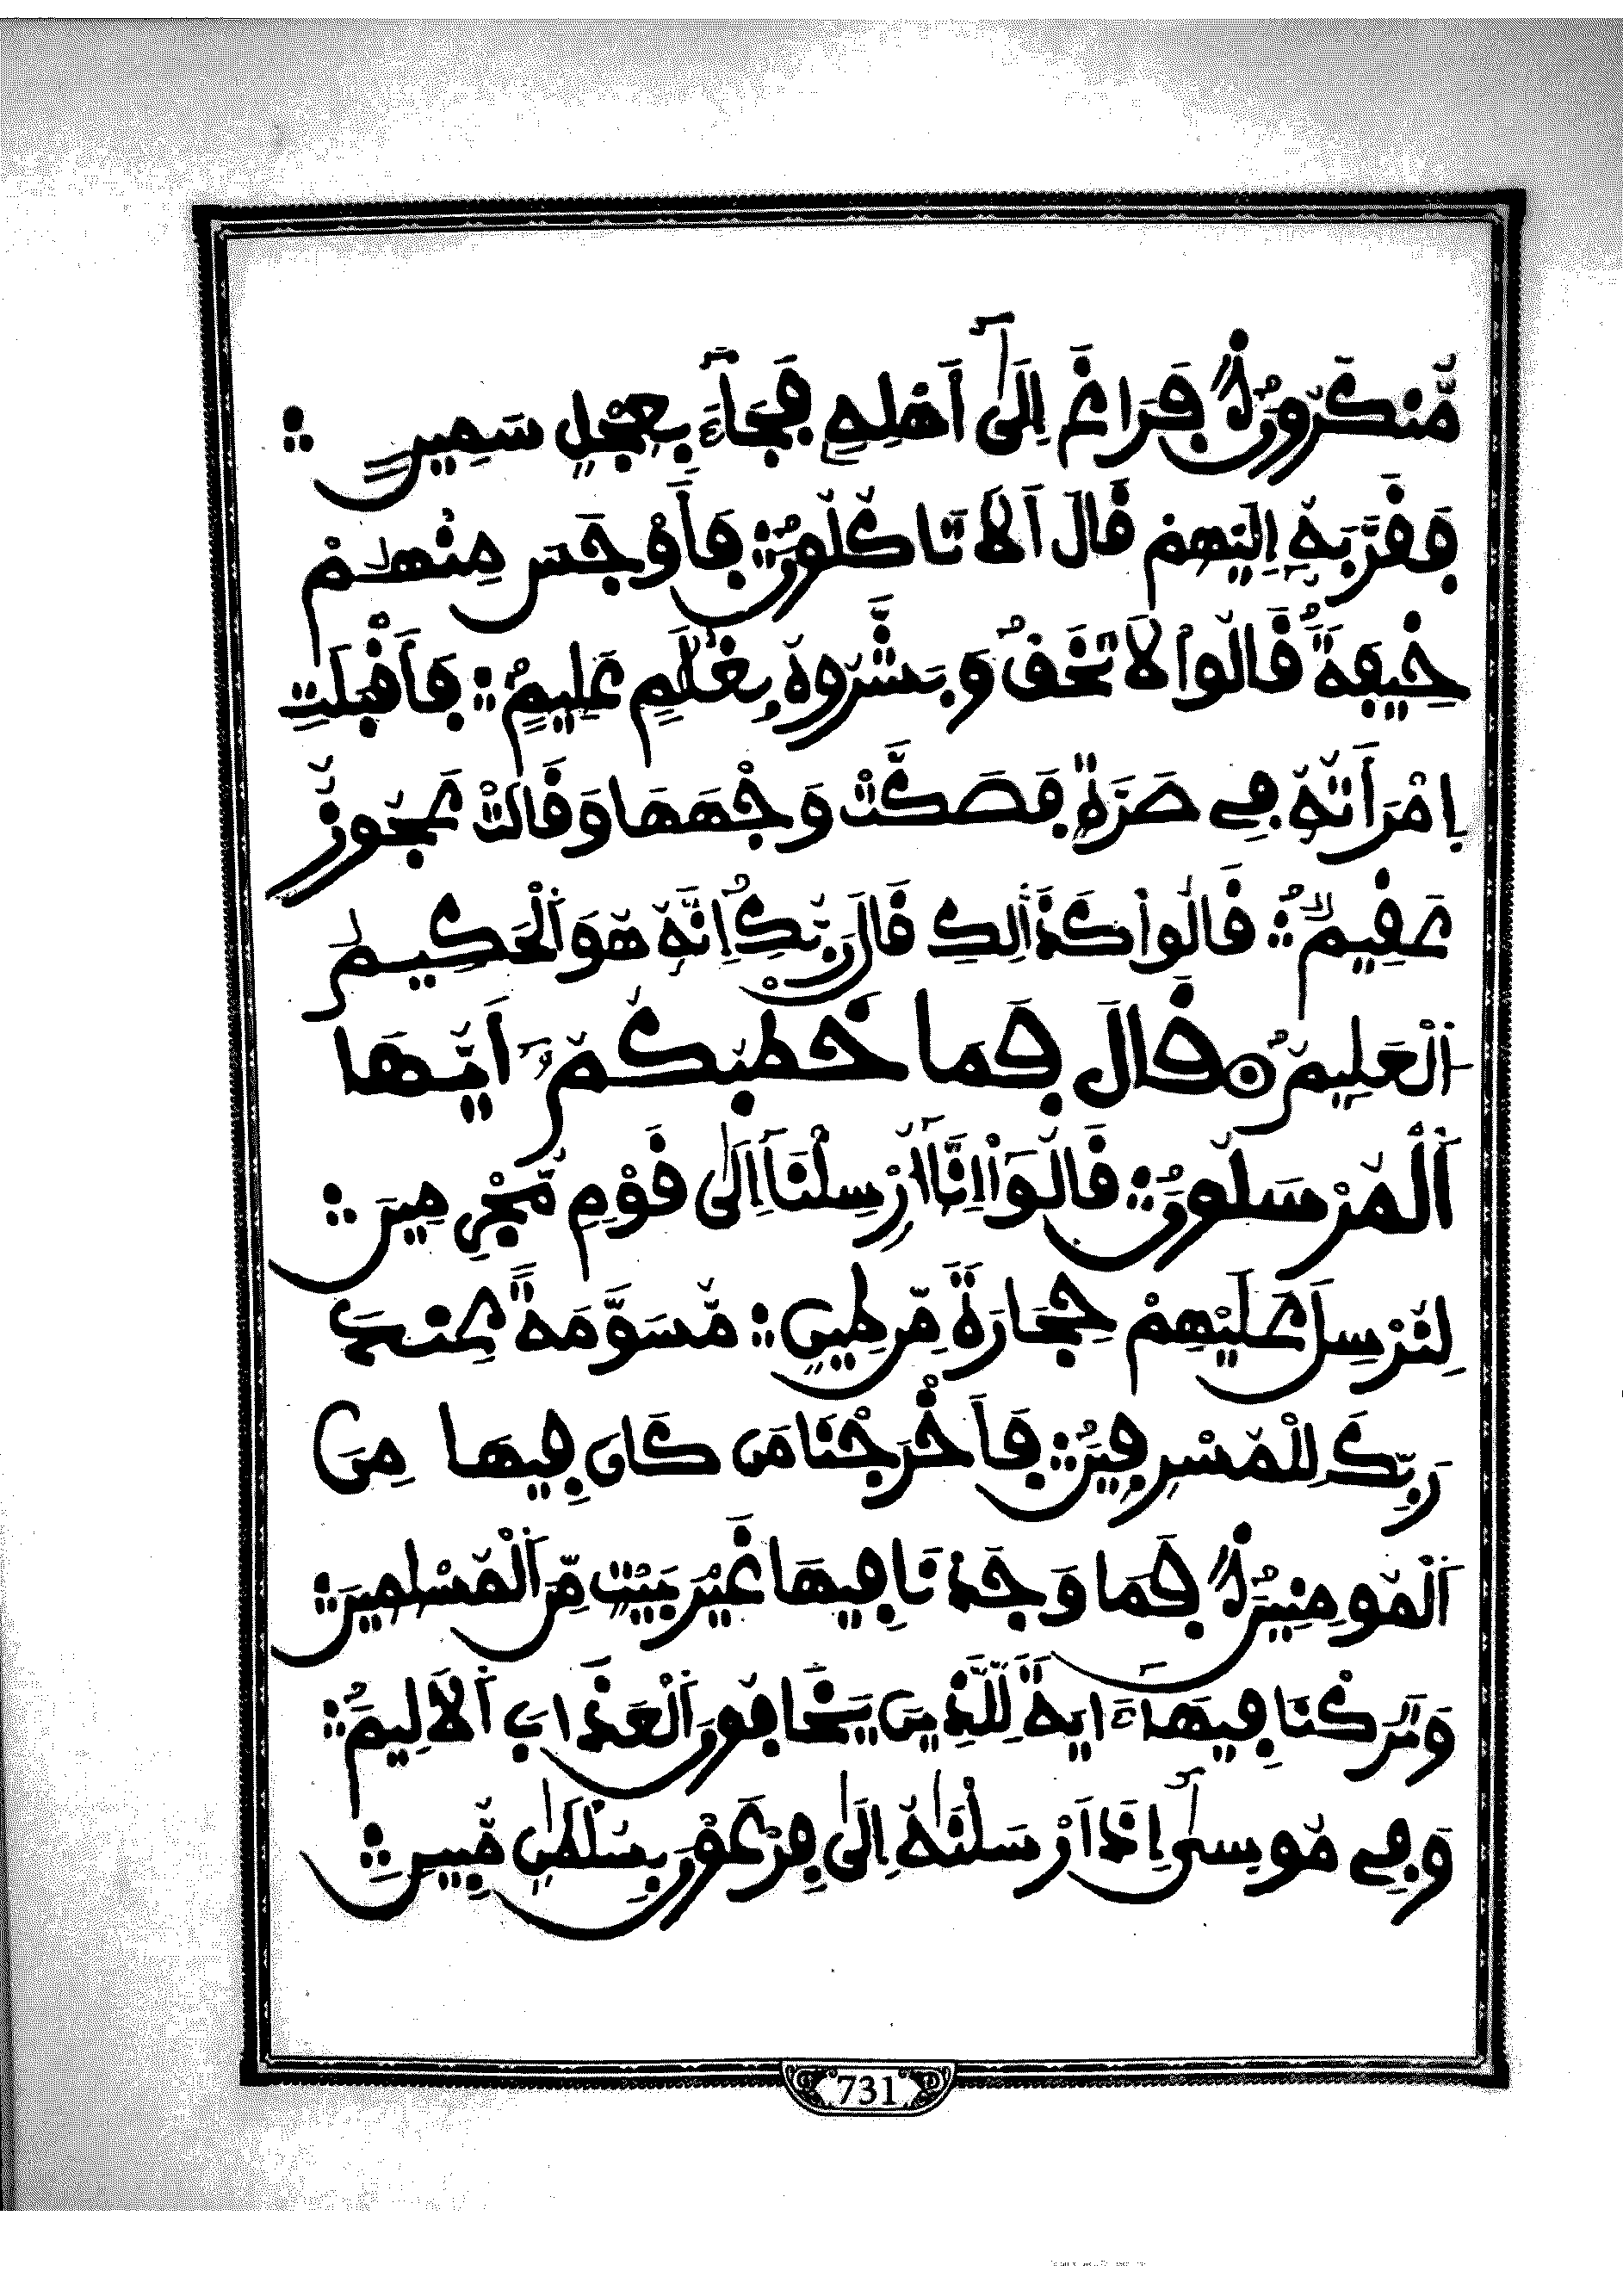 مُّنكَرُونَ ۞ فَرَاغَ إِلَىٰٓ أَهْلِهِۦ فَجَآءَ بِعِجْلٍ سَمِينٍ ۞
فَقَرَّبَهُۥٓ إِلَيْهِمْ قَالَ أَلَا تَاكُلُونَ ۞ فَأَوْجَسَ مِنْهُمْ
خِيفَةً قَالُواْ لَا تَخَفْ وَبَشَّرُوهُ بِغُلَٰمٍ عَلِيمٍ ۞ فَأَقْبَلَتِ
اِمْرَأَتُهُۥ فِے صَرَّةٍ فَصَكَّتْ وَجْهَهَا وَقَالَتْ عَجُوزٌ
عَقِيمٌ ۞ قَالُواْ كَذَٰلِكِ قَالَ رَبُّكِ إِنَّهُۥ هُوَ اَلْحَكِيمُ
اُلْعَلِيمُ ۞ قَالَ فَمَا خَطْبُكُمُۥٓ أَيُّهَا
اَلْمُرْسَلُونَ ۞ قَالُوٓاْ إِنَّآ أُرْسِلْنَآ إِلَىٰ قَوْمٍ مُّجْرِمِينَ ۞
لِنُرْسِلَ عَلَيْهِمْ حِجَارَةً مِّن طِينٍ ۞ مُّسَوَّمَةً عِندَ
رَبِّكَ لِلْمُسْرِفِينَ ۞ فَأَخْرَجْنَا مَن كَانَ فِيهَا مِنَ
اَلْمُومِنِينَ ۞ فَمَا وَجَدْنَا فِيهَا غَيْرَ بَيْتٍ مِّنَ اَلْمُسْلِمِينَ ۞
وَتَرَكْنَا فِيهَآ ءَايَةً لِّلذِينَ يَخَافُونَ اَلْعَذَابَ اَلَالِيمَ ۞
وَفِے مُوسَىٰٓ إِذْ أَرْسَلْنَٰهُ إِلَىٰ فِرْعَوْنَ بِسُلْطَٰنٍ مُّبِينٍ ۞
731